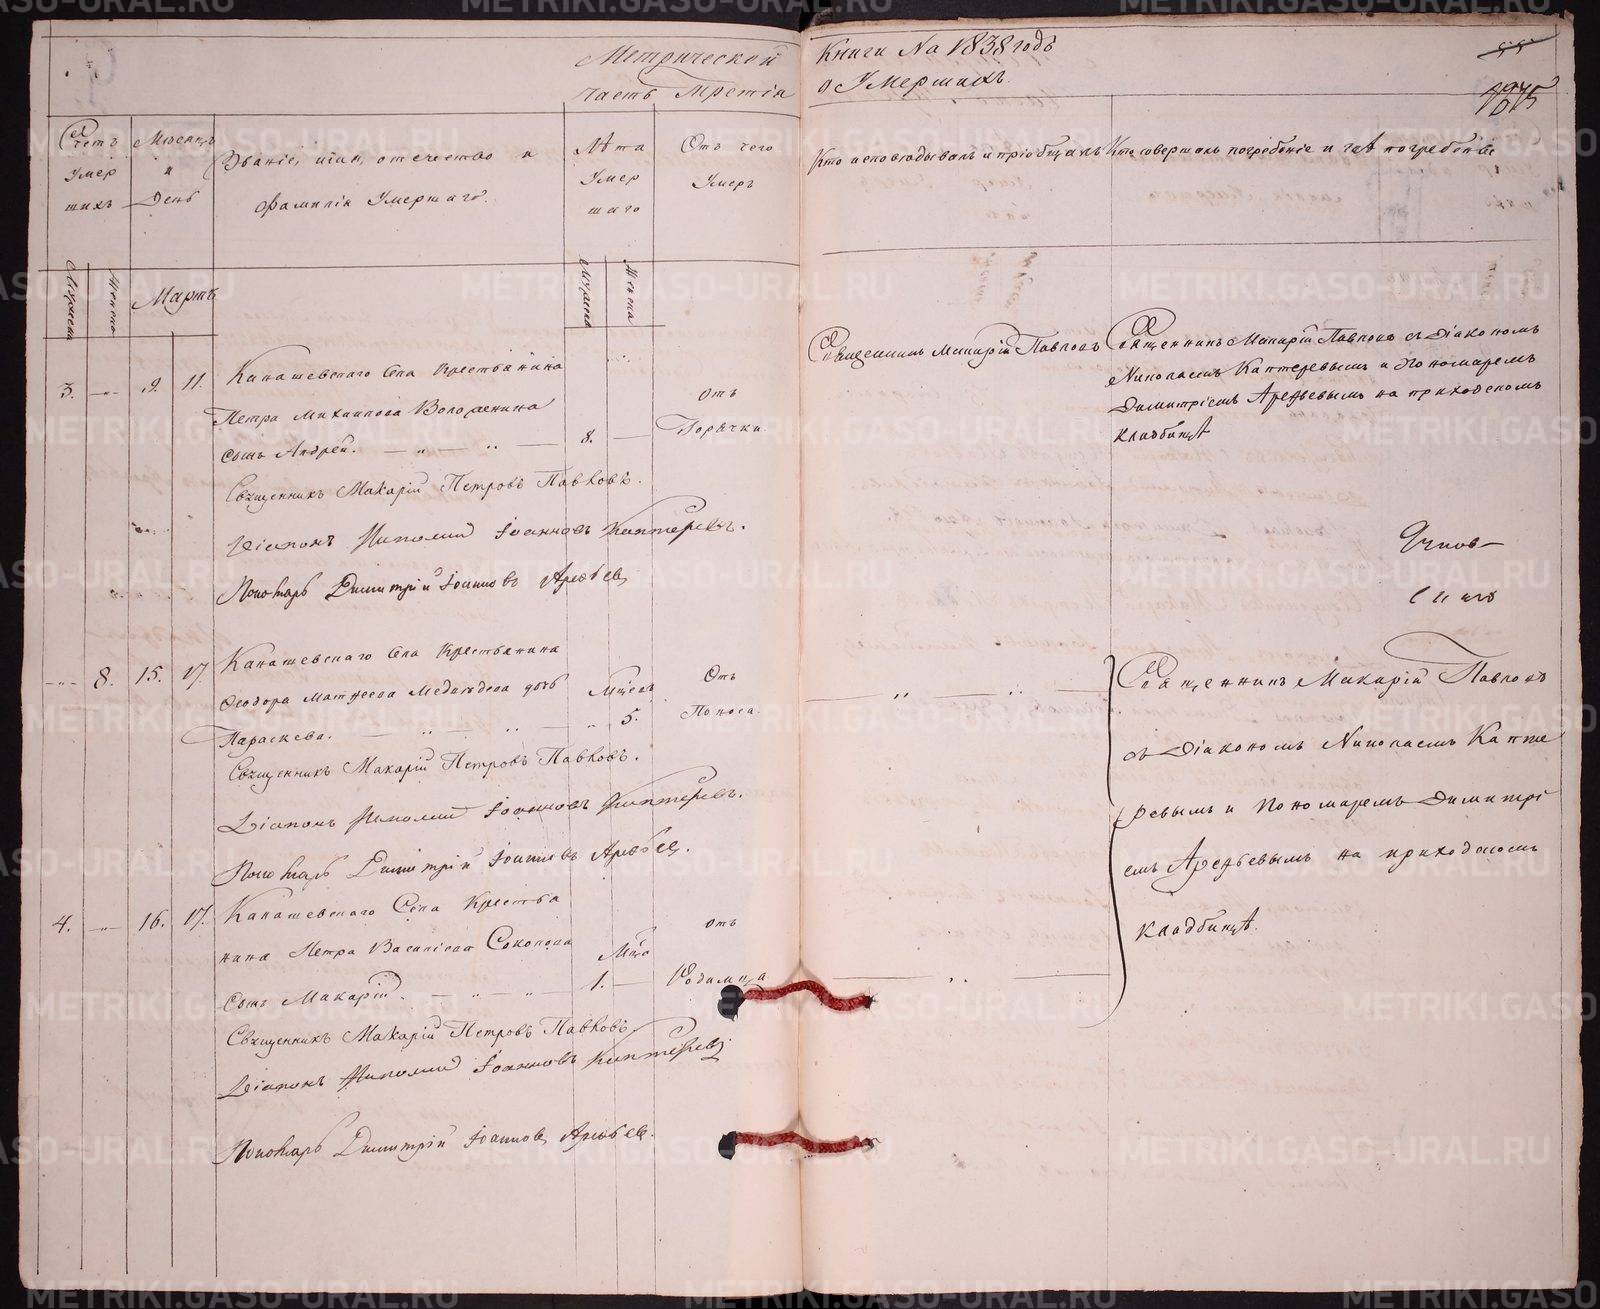 Метрической
часть Третiя
Книги На 1838 годъ
о Умершихъ.
Счетъ
умер
шихъ
Мѣсяцъ
и
День
Званiе, имя, отечество и
фамилiя Умершаго.
Лѣта
Умер
шаго
Отъ чего
Умеръ
Кто исповѣдывалъ и прiобщалъ
Кто совершалъ погребенiе и гдѣ погребены
Мужеска
Женска
Мартъ
Мужеска
Женска
3. 9. 11. Канашевскаго Села Крестьянина
Петра Михаилова
сынъ Андрей. 8.
отъ
Горячки
Священникъ Макарiй Павловъ
Священникъ Макарiй Павловъ съ Дiакономъ
Николаемъ Каптеревымъ и Пономаремъ
Димитрiемъ Арефьевымъ на приходскомъ
кладбищѣ
Священникъ Макарiй Петровъ Павловъ.
Дiаконъ Николай Iоанновъ Каптеревъ.
Пономарь Димитрiй Iоанновъ Арефьевъ
8. 15. 17. Канашевскаго Села Крестьянина
Феодора Матѳеева Медвѣдева дочь
Параскева.
Мѣсяц. 5.
Отъ
Поноса.
Священникъ Макарiй Павловъ
съ Дiакономъ Николаемъ Капте
ревымъ и Пономаремъ Димитрi
емъ Арефьевымъ на приходскомъ
кладбищѣ.
Священникъ Макарiй Петровъ Павловъ.
Дiаконъ Николай Iоанновъ Каптеревъ.
Пономарь Димитрiй Iоанновъ Арефьевъ.
4. 16. 17. Канашевскаго Села Крестья
нина Петра Васильева Соколова
сынъ Макарiй.
Мѣца 1.
отъ
Родимца
Священникъ Макарiй Петровъ Павловъ.
Дiаконъ Николай Iоанновъ Каптеревъ
Пономарь Димитрiй Iоанновъ Арефьевъ.
METRIKI.GASO-URAL.RU